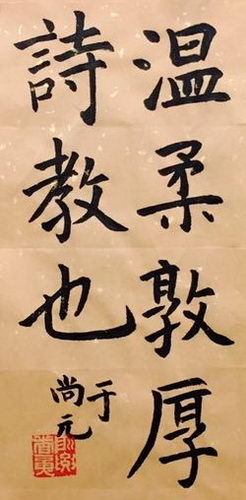 温柔敦厚
詩教也
于尚元